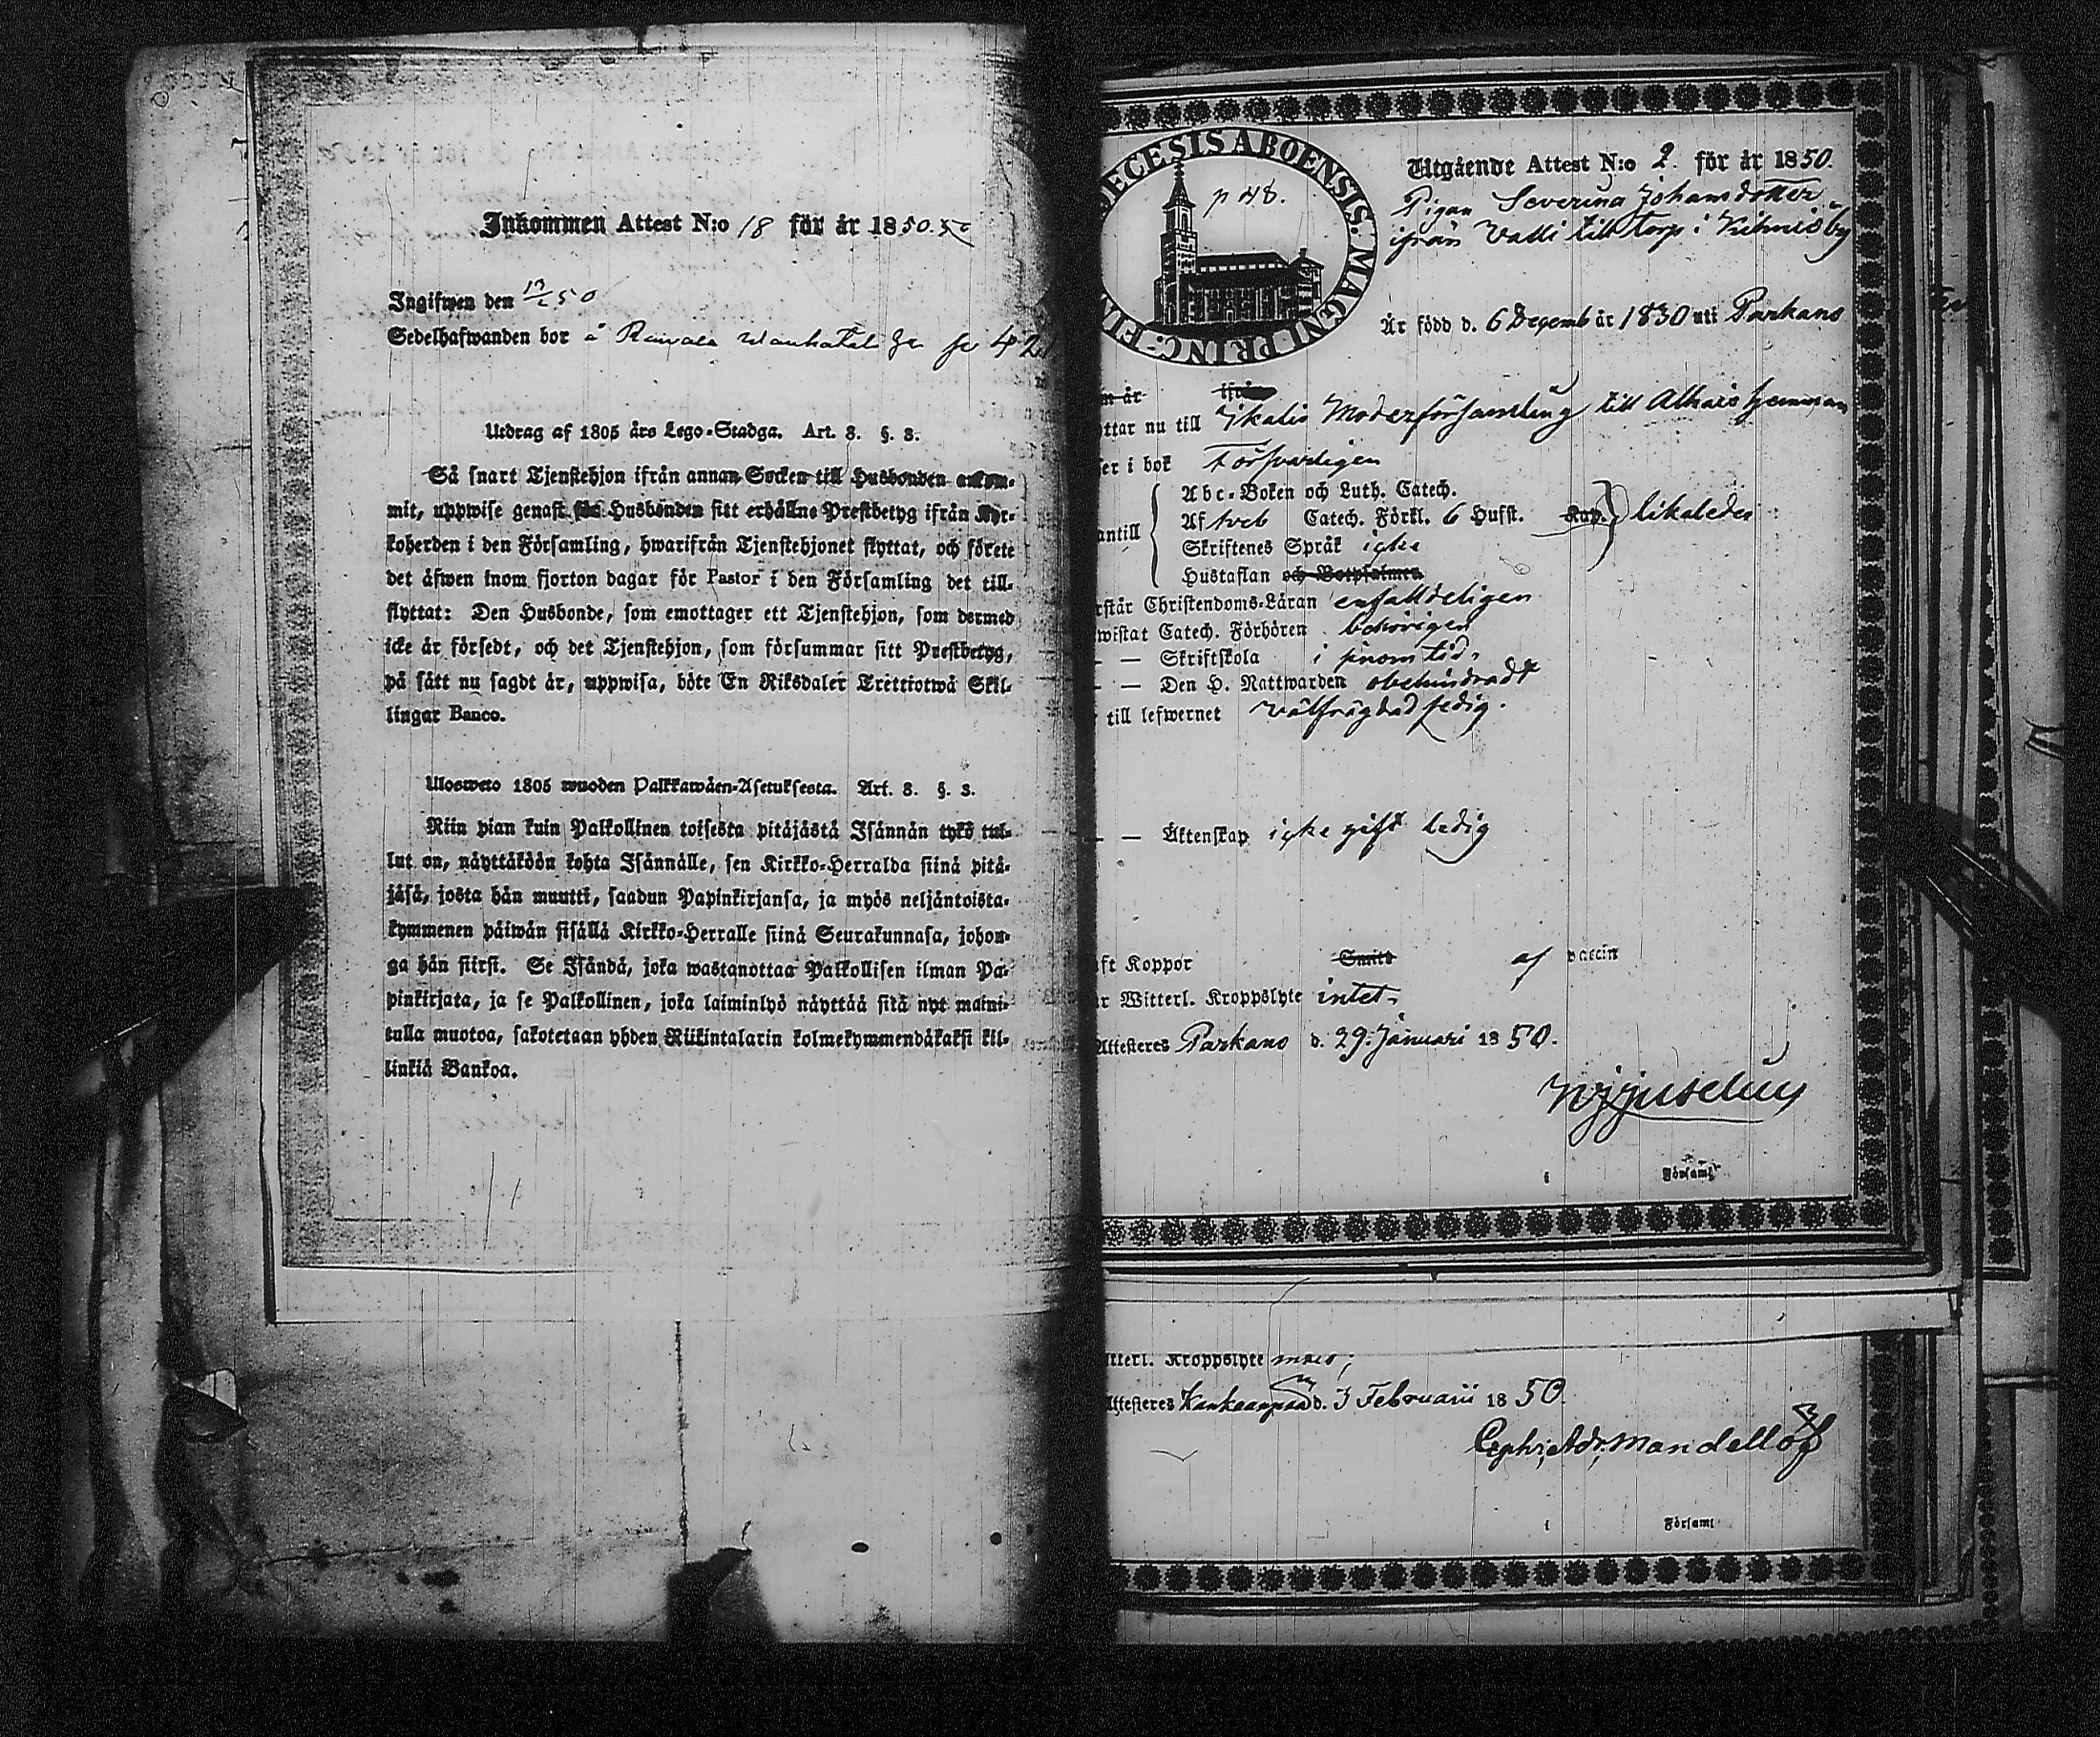 Inkommen Attest N:o 18 för år 1850.
Ingifwen den 50
Sedelhafwanden bor å
Utdrag af 1805 års Lego-Stadga. Art. 8. §. 3.
Så snart Tjenstehjon ifrån annan Socken till Husbonden ankom-
mit, uppwise genast Husbonden sitt erhållne Prestbetyg ifrån Kyr-
koherden i den Församling, hwarifrån Tjenstehjonet flyttat, och förete
det äfwen inom fjorton dagar för Pastor i den Församling det till-
flyttat: Den Husbonde, som emottager ett Tjenstehjon, som dermed
icke är försedt, och det Tjenstehjon, som försummar sitt Prestbetyg,
på sätt nu sagdt är, uppwisa, böte En Riksdaler Trettiotwå Skil-
lingar Banco.
Ulosweto 1805 wuoden Palkkawäen-Asetuksesta. Art. 8. §. 3.
Niin pian kuin Palkollinen toisesta pitäjästä Isännän tykö tul-
lut on, näyttäköön kohta Isännälle, sen Kirkko-Herralda siinä pitä-
jäsä, josta hän muutti, saadun Papinkirjansa, ja myös neljäntoista-
kymmenen päiwän sisällä Kirkko-Herralle siinä Seurakunnasa, johon-
ga hän siirsi. Se Isändä, joka wastanottaa Palkollisen ilman Pa-
pinkirjata, ja se Palkollinen, joka laiminlyö näyttää sitä nyt maini-
tulla muotoa, sakotetaan yhden Riikintalarin kolmekymmendäkaksi kil-
linkiä Bankoa.
DIOECESIS ABOENSIS. MAGNI PRINC. FIN
p 48.
Utgående Attest N:o 2. för år 1850.
Pigan Severina Johansdotter
ifrån Valli till torp i by
Är född d. 6 Decemb år 1830 uti Parkano
n år ifrån
ttar nu till Ikalis Moderförsamling till
er i bok Försvarligen
antill
Abc-Boken och Luth. Catech.
Af Catech. Förkl. 6 Hufst. likaledes
Skriftenes Språk icke
Hustaflan och Botpsalmen
rstår Christendoms-Läran enfalldeligen
wistat Catech. Förhören behörigen
— — Skriftskola i sinom tid
— — Den H. Nattwarden obehindradt
till lefwernet välfrägdad ledig.
— — Äktenskap icke gift ledig
ft Koppor Smitt af vaccin
r Witterl. Kroppslyte intet
Attesteres Parkano d. 29 Januari 1850.
i Församl
itterl. Kroppslyte
Attesteres Kankaanpää d. 3 Februarii 1850.
Mandellöf
i Församl